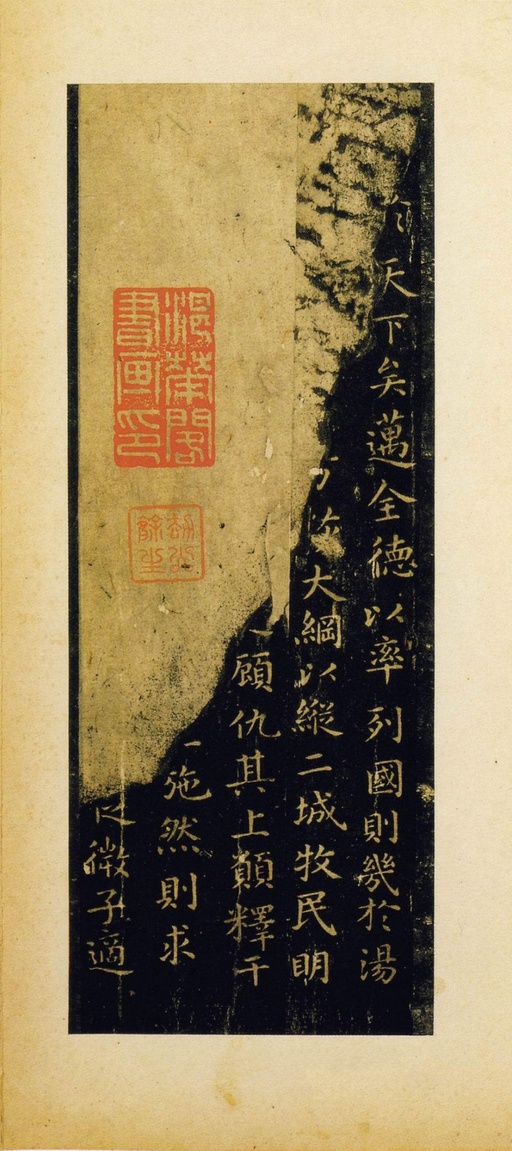 天下矣邁全德以率列國則幾於湯
大綱以縱二城牧民明
顧仇其上願釋干
施然則求
微子適
閣書画印
餘生